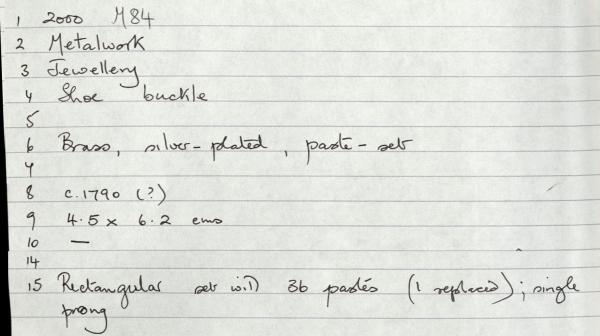 1 2000 M84
2 Metalwork
3 Jewellery
4 Shoe buckle
5
6 Brass, silver-plated, paste-set
7
8 c.1790 (?)
9 4.5 x 6.2 cms
10 —
14
15 Rectangular set with 36 pastes (1 replaced); single
prong